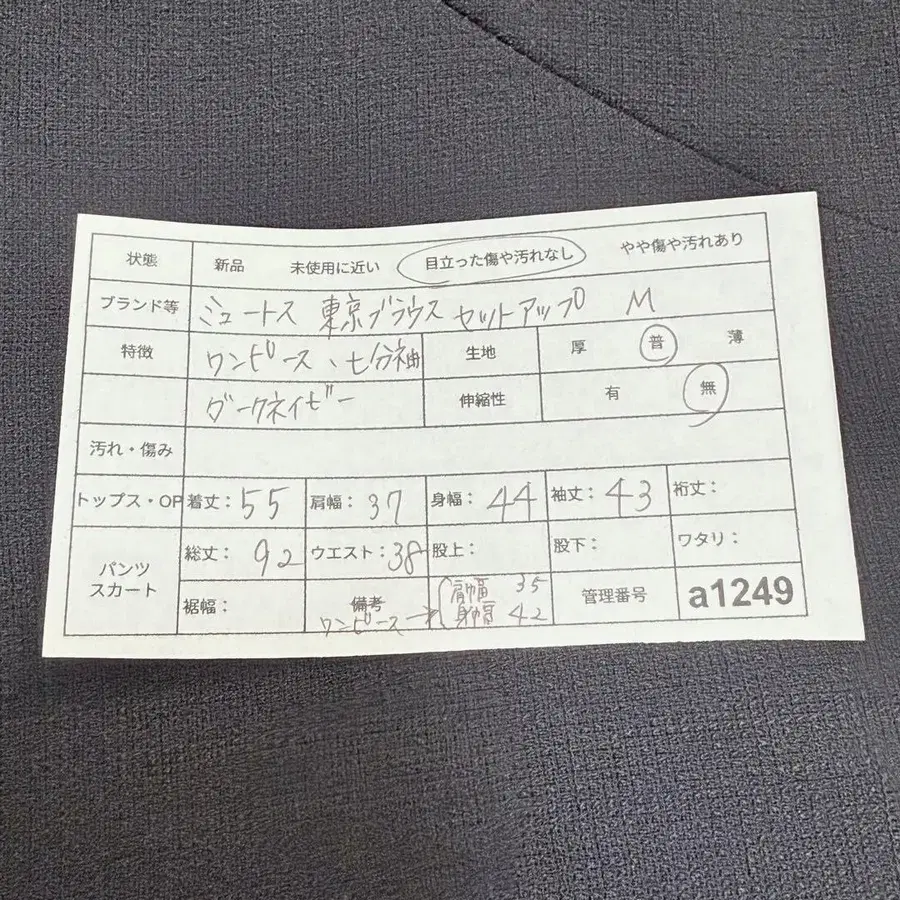 状態 新品 未使用に近い 目立った傷や汚れなし やや傷や汚れあり
ブランド等 ミュートス 東京ブラウス セットアップ M
特徴 ワンピース、七分袖 生地 厚 普 薄
ダークネイビー 伸縮性 有 無
汚れ・傷み
トップス・OP 着丈：55 肩幅：37 身幅：44 袖丈：43 裄丈：
パンツ スカート 総丈：92 ウエスト：38 股上： 股下： ワタリ：
裾幅： 備考 ワンピース→ 肩幅 35 身幅 42 管理番号 a1249